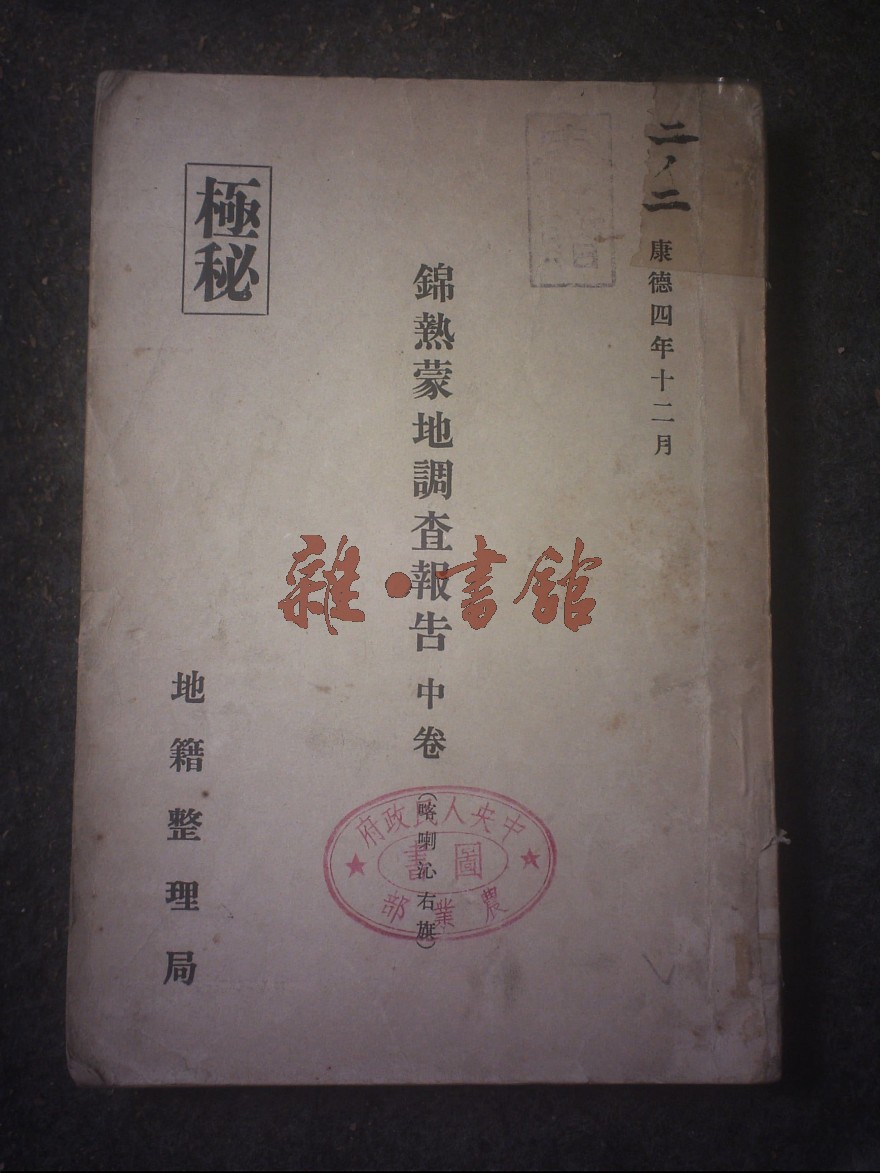 二ノ二
康德四年十二月
錦熱蒙地調査報告 中卷
(喀喇沁右旗)
極秘
地籍整理局
中央人民政府
農業部
圖書
雜·書館